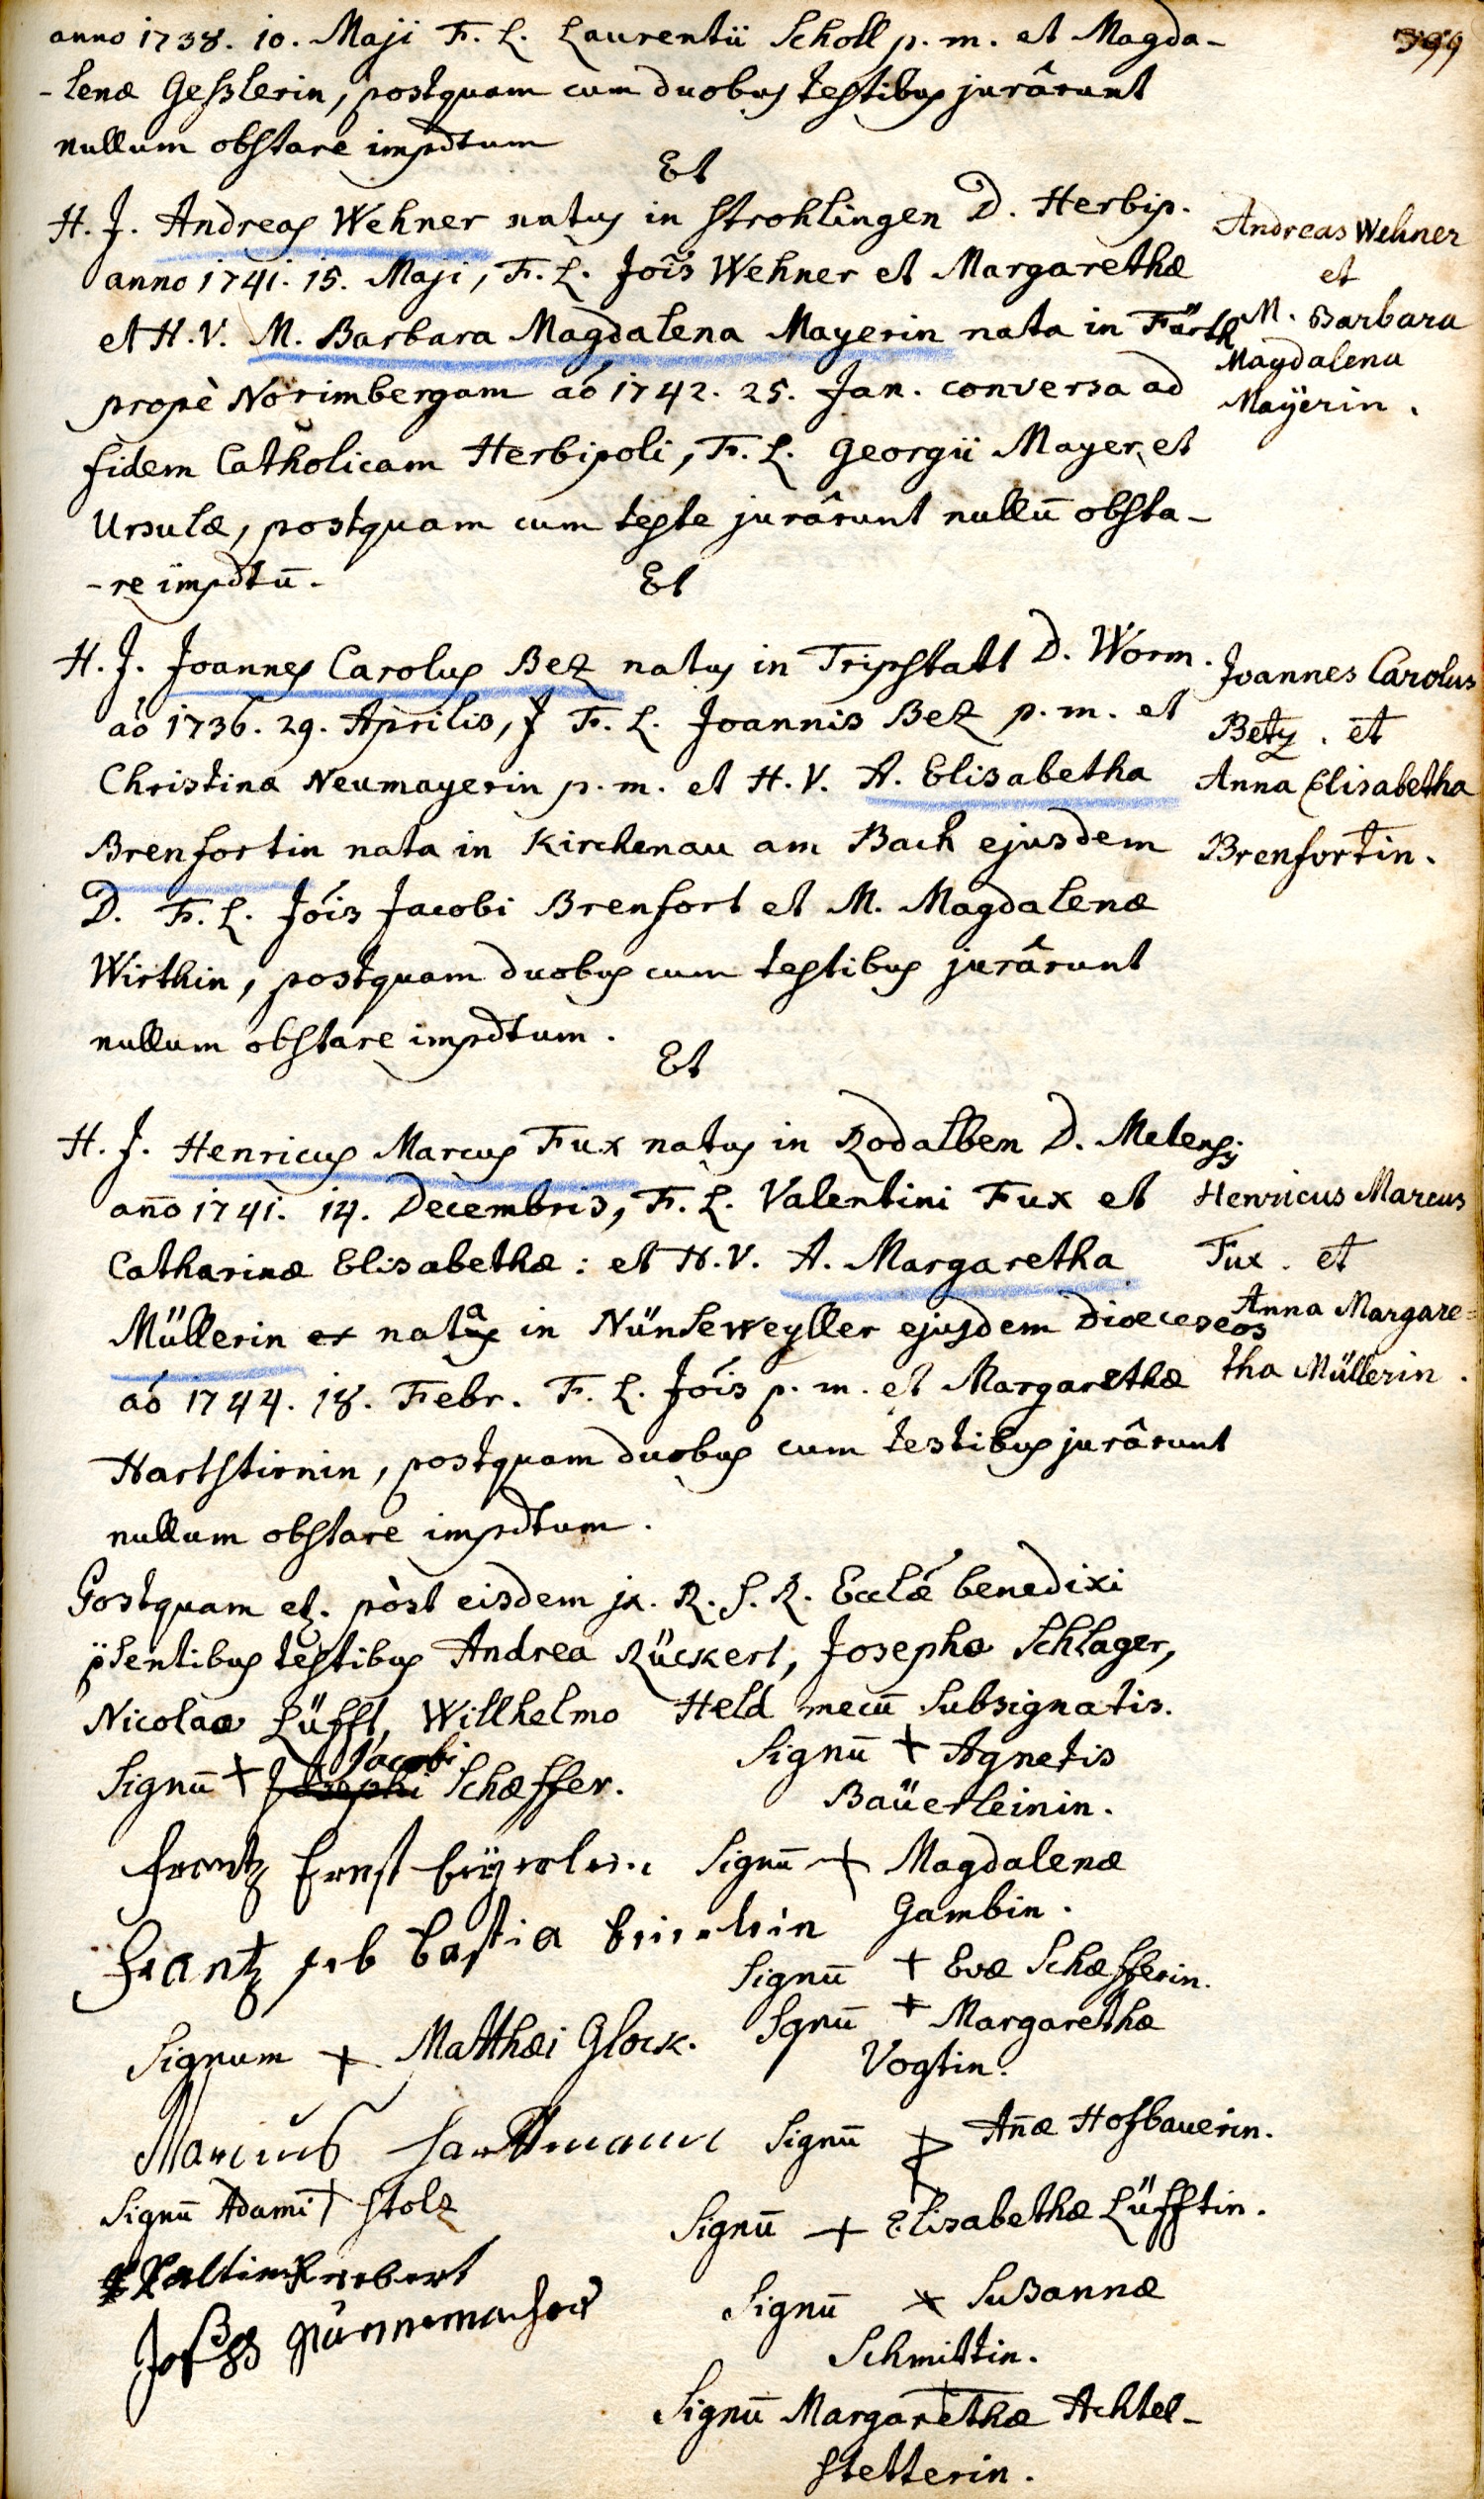 399
anno 1738. 10. Maji F. L. Laurentii Scholl p. m. et Magda-
-lenæ Geßlerin, postquam cum duobus testibus jurârunt
nullum obstare impdtum
Et
H. J. Andreas Wehner natus in Strohlingen D. Herbip.
anno 1741. 15. Maji, F. L. Jois Wehner et Margarethæ
et H. V. M. Barbara Magdalena Mayerin nata in Fürth
propè Norimbergam aó 1742. 25. Jan. conversa ad
fidem Catholicam Herbipoli, F. L. Georgii Mayer, et
Ursulæ, postquam cum teste jurârunt nullū obsta-
-re impdtū.
Et
Andreas Wehner
et
M. Barbara
Magdalena
Mayerin.
H. J. Joannes Carolus Bez natus in Tripstatt D. Worm.
aó 1736. 29. Aprilis, F. L. Joannis Bez p. m. et
Christinæ Neumayerin p. m. et H. V. A. Elisabetha
Brenfortin nata in Kirchenau am Bach ejusdem
D. F. L. Jóis Jacobi Brenfort et M. Magdalenæ
Wirthin, postquam duobus cum testibus jurârunt
nullum obstare impdtum.
Et
Joannes Carolus
Betz. et
Anna Elisabetha
Brenfortin.
H. J. Henricus Marcus Fux natus in Rodalben D. Metensis
año 1741. 14. Decembris, F. L. Valentini Fux et
Catharinæ Elisabethæ: et H. V. A. Margaretha
Müllerin nata in Nünseweyller ejusdem Dioeceseos
aó 1744. 18. Febr. F. L. Jóis p. m. et Margarethæ
Hartstirnin, postquam duobus cum testibus jurârunt
nullum obstare impdtum.
Henricus Marcus
Fux. et
Anna Margare=
tha Müllerin.
Postquam et. pòst eisdem jx. R. S. R. Ecclæ benedixi
p̈sentibus testibus Andrea Rückert, Josepho Schlager,
Nicolao Lüfft, Willhelmo Held mecū subsignatis.
Signū + Jacobi Schæffer.
Signū + Agnetis
Bäüerleinin.
Frantz Ernst
Signū + Magdalenæ
Gambin.
Frantz seb bastia
Signū + Evæ Schæfferin.
Signum + Matthæi Glock.
Sgnū + Margarethæ
Vogtin.
Marcus Harttmann
Signū + Añæ Hofbauerin.
Signū Adami + Stolz
Signū + Elisabethæ Lüfftin.
Signū + Sußannæ
Schmittin.
Signū Margarethæ Achtel-
stetterin.